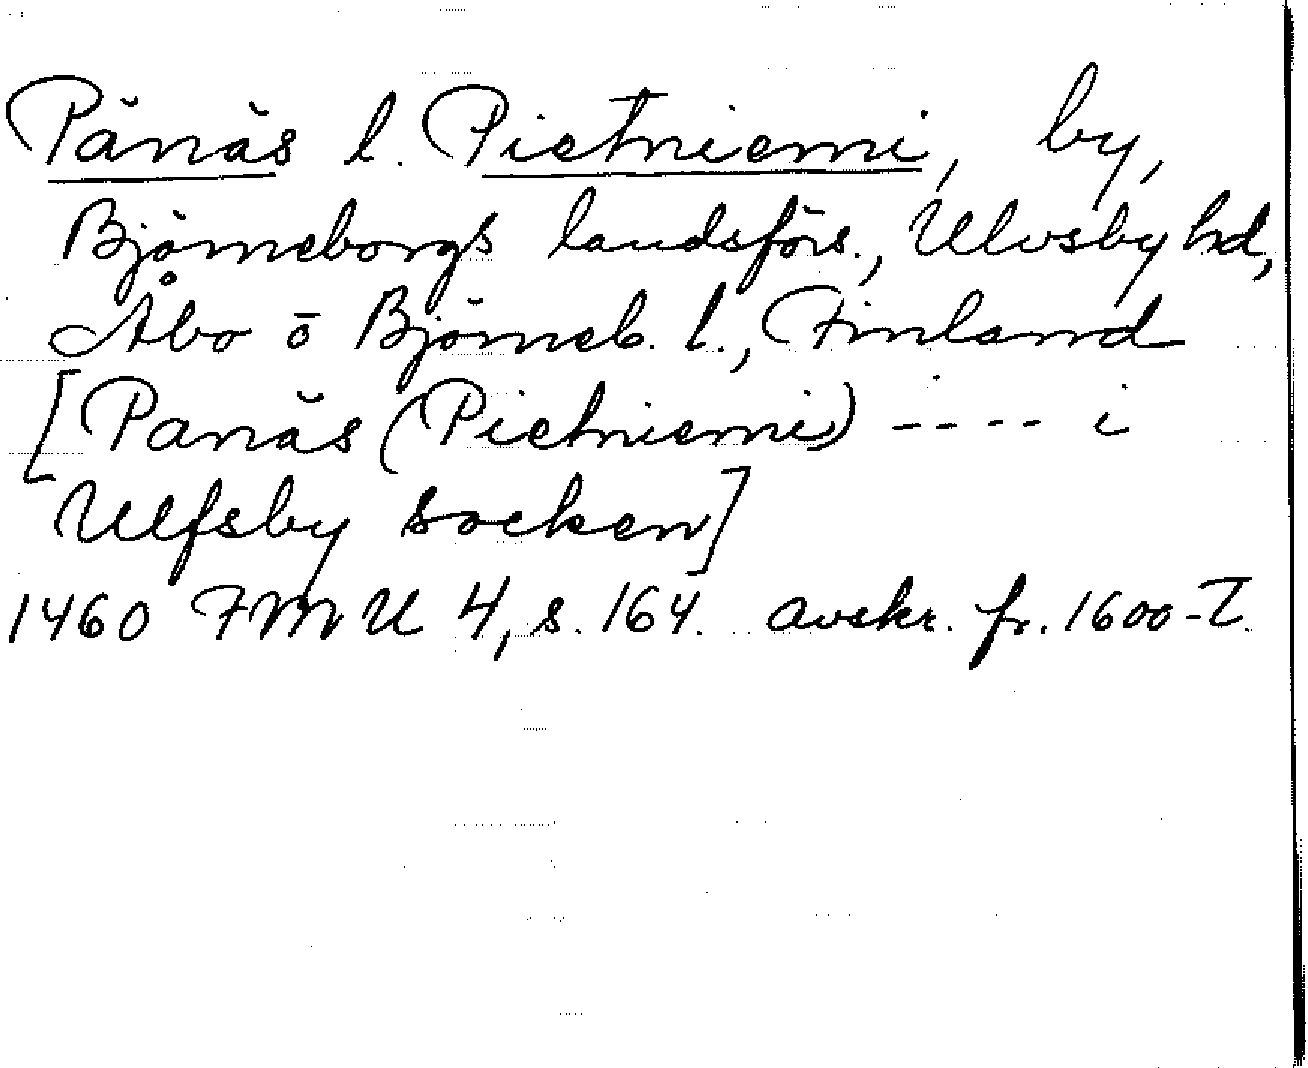 Pänäs l. Pietniemi, by,
Björneborgs landsförs., Ulvsby hd,
Åbo o Björneb. l., Finland
[Panäs (Pietniemi) ---- i
Ulfsby socken]
1460 FMU 4, s. 164. avskr. fr. 1600-T.